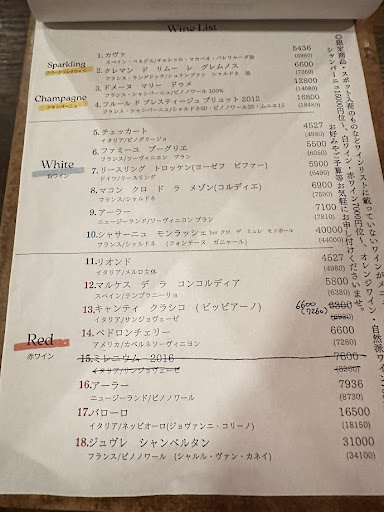 Wine List
Sparkling
スパークリングワイン
1. カヴァ 5436
(5980)
2. クレマン ド リムー レ グレムノス 6600
(7260)
フランス・ラングドック/シャルドネ 他
3. ドメーヌ マリー ドゥメ 12800
フランス・シャンパーニュ/ピノノワール 100% (14080)
Champagne
シャンパーニュ
4. フルール ド プレスティージュ ブリュット 2012 16800
フランス・シャンパーニュ/シャルドネ60・ピノノワール25・ムニエ15 (18480)
White
白ワイン
5. チェッカート 4527
イタリア/ピノグリージョ (4980)
6. ファミーユ ブーグリエ 5500
フランス/ソーヴィニヨン ブラン (6050)
7. リースリング トロッケン(ヨーゼフ ビファー) 5900
ドイツ/リースリング (6490)
8. マコン クロ ド ラ メゾン(コルディエ) 6900
フランス/シャルドネ (7590)
9. アーラー 7100
ニュージーランド/ソーヴィニヨンブラン (7810)
10. シャサーニュ モンラッシェ 1er クロ デ ミュレ モノポール 40000
フランス/シャルドネ (フォンテーヌ ガニャール) (44000)
Red
赤ワイン
11. リオンド 4527
イタリア/メルロ主体 (4980)
12. マルケス デ ラ コンコルディア 5800
スペイン/テンプラニーリョ (6380)
13. キャンティ クラシコ (ビッビアーノ) 6300
6600
(7260)
イタリア/サンジョヴェーゼ
14. ペドロンチェリー 6600
アメリカ/カベルネソーヴィニヨン (7260)
15. ミレニウム 2016 7600
イタリア/サンジョヴェーゼ (8360)
16. アーラー 7936
ニュージーランド/ピノノワール (8730)
17. バローロ 16500
イタリア/ネッビオーロ(ジョヴァンニ・コリーノ) (18150)
18. ジュヴレ シャンベルタン 31000
フランス/ピノノワール (シャルル・ヴァン・カネイ) (34100)
◎限定商品・スポット入荷のものなどワインリストに載っていないワインが
シャンパーニュ15600円位〜、白ワイン・赤ワイン7000円位〜、オレンジワイン・自然派ワイン
お好みやご予算等お気軽にお申し付けくださいませ。